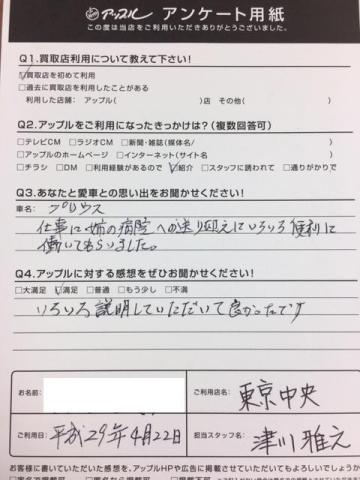 アップル アンケート用紙
この度は当店をご利用いただきありがとうございました。
Q1.買取店利用について教えて下さい!
☑買取店を初めて利用
□過去に買取店を利用したことがある
利用した店舗: アップル( )店 その他( )
Q2.アップルをご利用になったきっかけは?(複数回答可)
□テレビCM □ラジオCM □新聞・雑誌(媒体名/ )
□アップルのホームページ □インターネット(サイト名 )
□チラシ □DM □利用経験があるので ☑紹介 □スタッフに誘われて □通りがかりで
Q3.あなたと愛車との思い出をお聞かせください!
車名: プリウス
仕事に姉の病院への送り迎えにいろいろ便利に
働いてもらいました。
Q4.アップルに対する感想をぜひお聞かせください!
□大満足 ☑満足 □普通 □もう少し □不満
いろいろ説明していただいて良かったです
お名前:
ご利用店名: 東京中央
ご利用日: 平成29年4月22日
担当スタッフ名: 津川雅之
お客様に書いていただいた感想を、アップルHPや広告に掲載させていただいてもよろしいでしょうか